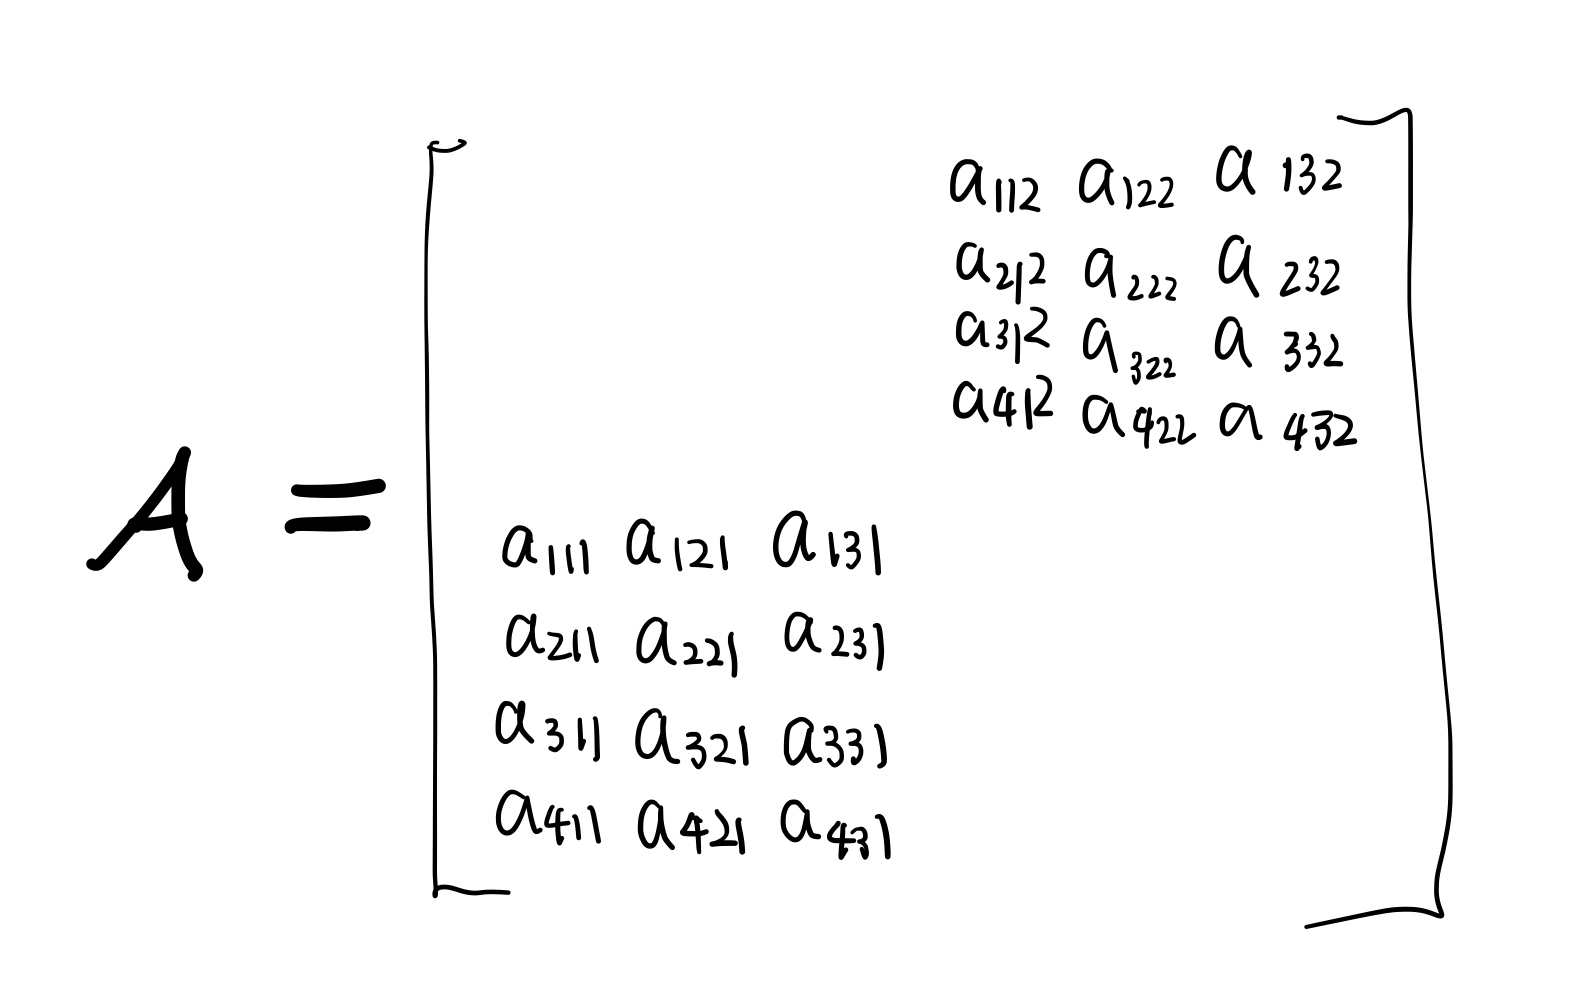 a112 a122 a132
a212 a222 a232
a312 a322 a332
a412 a422 a432
A =
a111 a121 a131
a211 a221 a231
a311 a321 a331
a411 a421 a431